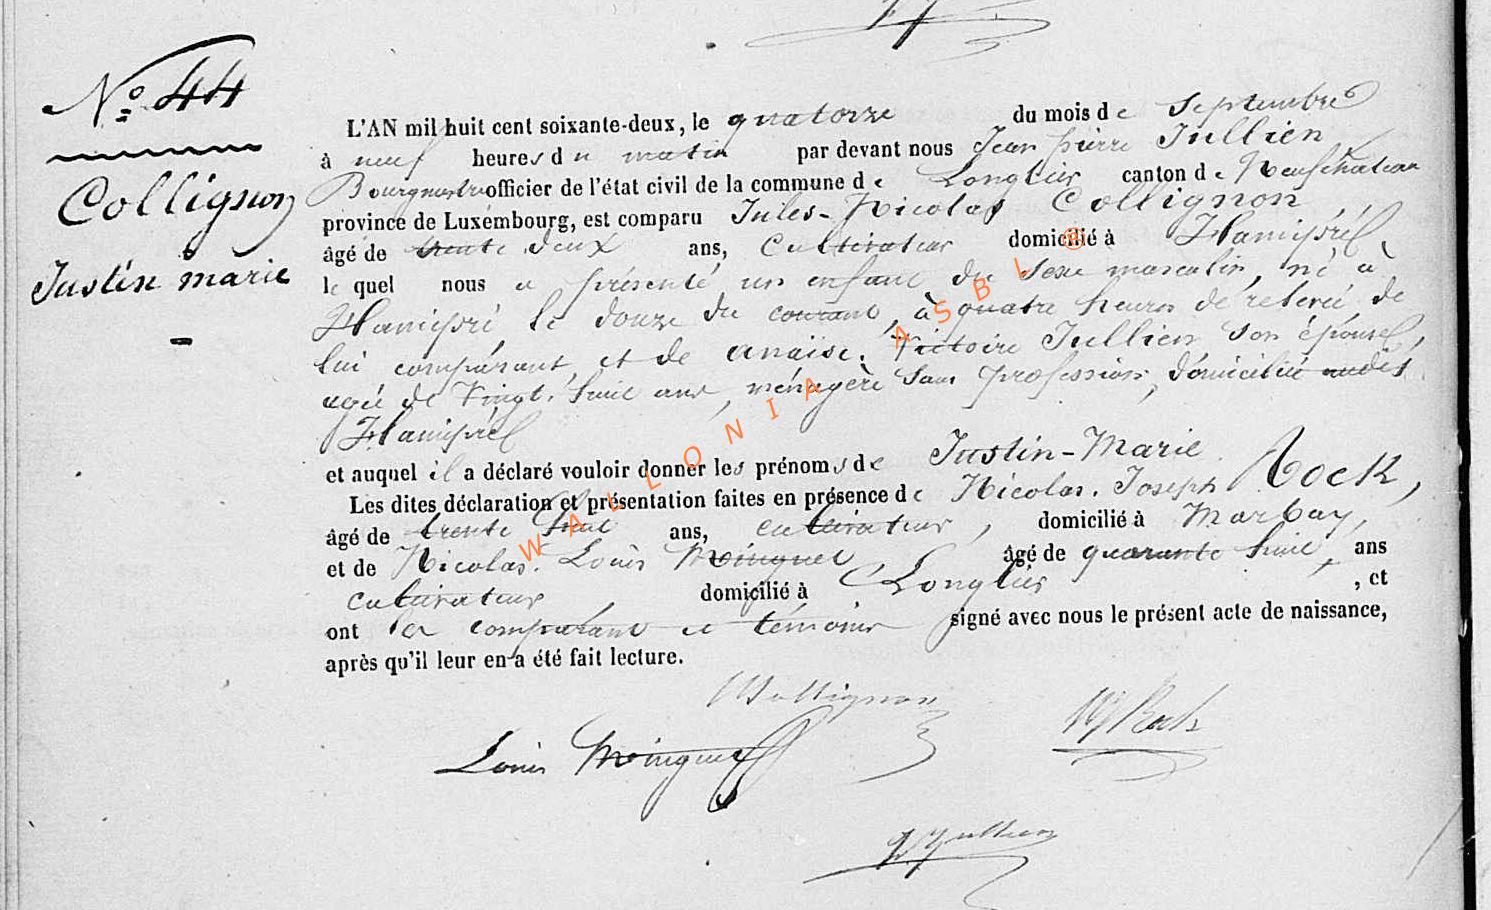 N° 44
Collignon
Justin marie
L'AN mil huit cent soixante-deux, le quatorze du mois de Septembre
à neuf heures du matin par devant nous Jean pierre Jullien
Bourgmestre officier de l'état civil de la commune de Longlier canton de Neufchateau
province de Luxembourg, est comparu Jules-Nicolas Collignon
âgé de trente deux ans, Cultivateur domicilié à Hamipré,
le quel nous a présenté un enfant du sexe masculin, né à
Hamipré le douze du courant, à quatre heures de relevée de
lui comparant et de anaïse. Victoire Jullien son épouse,
agée de Vingt. huit ans, ménagère sans profession, domiciliée audit
Hamipré
et auquel il a déclaré vouloir donner les prénoms de Justin-Marie
Les dites déclaration et présentation faites en présence de Nicolas. Joseph Bock,
âgé de trente huit ans, cultivateur, domicilié à Marbay,
et de Nicolas. Louis Moinguet âgé de quarante huit, ans
cultivateur, domicilié à Longlier, et
ont les comparant et témoins signé avec nous le présent acte de naissance,
après qu'il leur en a été fait lecture.
Collignon
NJ Bock
Louis Moinguet
Jullien
WALLONIA ASBL ®